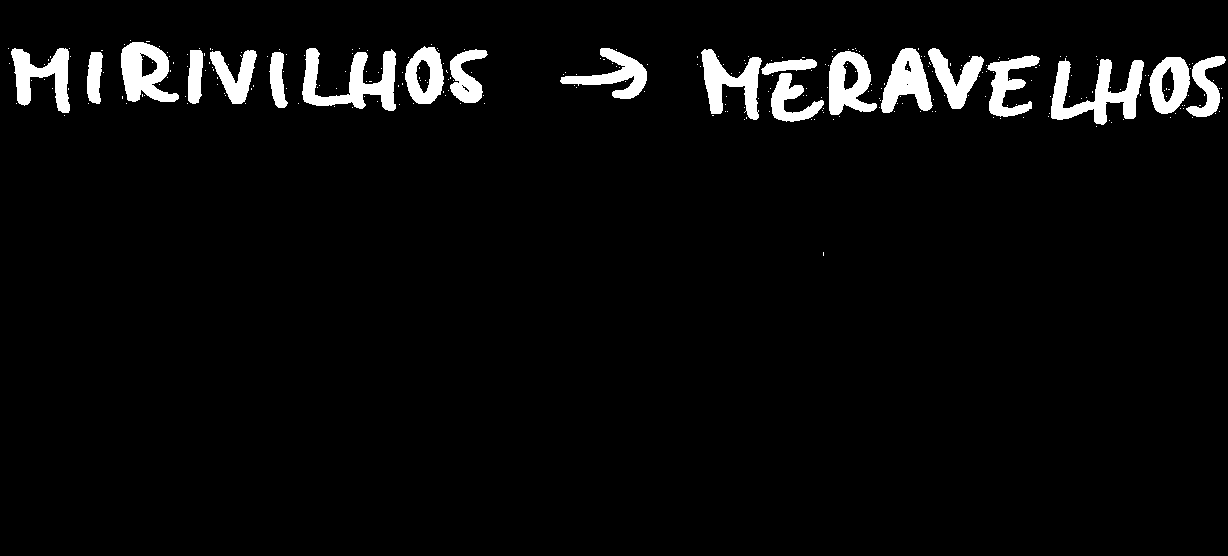 MIRIVILHOS → MERAVELHOS